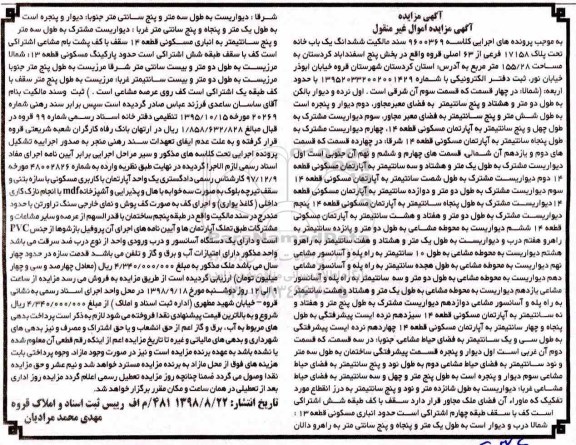 آگهی مزایده
آگهی مزایده اموال غیر منقول
به موجب پرونده های اجرایی کلاسه ۹۶۰۰۳۶۹ سند مالکیت ششدانگ یک باب خانه
تحت پلاک ۱۷۱۵۸ فرعی از ۶۳ اصلی قروه واقع در بخش پنج اسفندآباد کردستان به
مساحت ۱۵۵/۲۸ متر مربع به آدرس: استان کردستان شهرستان قروه خیابان ابوذر
خیابان نور، ثبت دفتر الکترونیکی با شماره ۱۳۹۵۲۰۳۳۲۰۰۲۰۰۱۴۲۹ با حدود
اربعه: (شمالا: در چهار قسمت که قسمت سوم آن شرقی است . اول نرده و دیوار بالکن
به طول دو متر و هشتاد و پنج سانتیمتر به فضای معبرمجاور، دوم دیوار و پنجره است
به طول شش متر و پنج سانتیمتر به فضای معبر مجاور. سوم دیواریست مشترک به
طول چهل و پنج سانتیمتر به آپارتمان مسکونی قطعه ۱۴، چهارم دیواریست مشترک به
طول پنج متر به آپارتمان مسکونی قطعه ۱۴ شرقا: در چهارده قسمت که قسمت
های دوم و یازدهم آن شمالی، قسمت های چهارم و ششم و نهم آن جنوبی است اول
دیواریست مشترک به طول یک متر و هشتاد و سه سانتیمتر به آپارتمان مسکونی قطعه
۱۴ دوم دیواریست مشترک به طول شصت سانتیمتر به آپارتمان مسکونی قطعه ۱۴
سوم دیواریست مشترک به طول دو متر و دوازده سانتیمتر به آپارتمان مسکونی قطعه
۱۴ دیواریست مشترک به طول پنجاه سانتیمتر به آپارتمان مسکونی قطعه ۱۴ پنجم
دیواریست مشترک به طول دو متر و هفتاد و هشت سانتیمتر به آپارتمان مسکونی
قطعه ۱۴ ششم دیواریست به محوطه مشاعی به طول دو متر و پانزده سانتیمتر به
راهرو هفتم درب و دیواریست به طول یک متر و هشتاد و هفت سانتیمتر به راهرو
هشتم دیواریست به محوطه مشاعی به طول ۱۰ سانتیمتر به راه پله و آسانسور مشاعی
نهم دیواریست به محوطه مشاعی به طول هجده سانتیمتر به راه پله و آسانسور مشاعی
دهم دیواریست به محوطه مشاعی به طول دو متر و سه سانتیمتر به راه پله و آسانسور
مشاعی یازدهم دیواریست به محوطه مشاعی به طول یک متر و هشتاد وهشت سانتیمتر
به راه پله و آسانسور مشاعی دوازدهم دیواریست مشترک به طول پنج متر و هفتاد و
نه سانتیمتر به آپارتمان مسکونی قطعه ۱۴ سیزدهم نرده ایست پیشرفتگی به طول
پنجاه و چهار سانتیمتر به آپارتمان مسکونی قطعه ۱۴ چهاردهم نرده ایست پیشرفتگی
به طول سی و یک سانتیمتر به فضای حیاط مشاعی، جنوبا: در سه قسمت، که قسمت
دوم آن غربی است اول دیوار و پنجره قسمت پیشرفتگی ساختمان به طول سه متر
و نود سانتیمتر به فضای حیاط مشاعی دوم به فضای مشاعی به طول پنجاه سانتیمتر
به فضای حیاط مشاعی سوم دیوار و پنجره به طول پنج متر و چهل و سه سانتیمتر به فضای حیاط
مشاعی غربا: دیواریست به طول شانزده متر و نود و پنج سانتیمتر به درز انقطاع مورد
تفکیک که ماوراء آن فضای ملک مجاور قرار دارد سقف با کف طبقه شش اشتراکی
است کف با سقف طبقه چهارم اشتراکی است حدود انباری مسکونی قطعه ۱۳ :
شمالا درب و دیوار است به طول یک متر و پنجاه و پنج سانتی متر به راهرو دالان
شرقا : دیواریست به طول سه متر و پنج سانتی متر جنوبا: دیوار و پنجره است
به طول یک متر و پنجاه و پنج سانتی متر غربا : دیواریست مشترک به طول سه متر
و پنج سانتیمتر به انباری مسکونی قطعه ۱۴ سقف با کف پشت بام مشاعی اشتراکی
است کف با سقف طبقه شش اشتراکی است حدود پارکینگ مسکونی قطعه ۱۳: شمالا
مرزیست به طول دو متر و بیست سانتی متر شرقا مرزیست به طول پنج متر جنوبا
مرزیست به طول دو متر و بیست سانتیمتر غربا: مرزیست به طول پنج متر سقف با
کف طبقه یک اشتراکی است کف روی عرصه مشاعی است . ) ثبت وسند مالکیت بنام
آقای ساسان ساعدی فرزند عباس صادر گردیده است سپس برابر سند رهنی شماره
۲۰۲۶۹ مورخ ۱۳۹۵/۱۰/۱۵ تنظیمی دفترخانه اسناد رسمی شماره ۹۹ قروه در
قبال مبلغ ۱/۸۵۸/۶۳۲/۸۲۸ ریال در ارتهان بانک رفاه کارگران شعبه شریعتی قروه
قرار گرفته و به علت عدم ایفای تعهدات سند رهنی منجر به صدور اجراییه تشکیل
پرونده اجرایی تحت کلاسه های مذکور و سیر مراحل اجرایی برابر آیین نامه اجرای مفاد
اسناد رسمی لازم الاجرا گردیده در نهایت طبق نظریه وارده به شماره ۴۸۰۰۲۸۴۲ مورخ
۹۷/۱۲/۹ کارشناس رسمی دادگستری یک واحد آپارتمان با کاربری مسکونی با سازه بتنی و
سقف تیرچه بلوک به صورت سه خوابه با هال و پذیرایی و آشپزخانه mdf با انجام نازک کاری
داخلی (کاغذ دیواری) و اجرای کف به صورت کف پوش و نمای خارجی سنگ تراورتن با حدود
مندرج در سند مالکیت واقع در طبقه پنجم ساختمان با قدر السهم از عرصه و سایر مشاعات و
مشترکات طبق تملک آپارتمان ها و آیین نامه های اجرای آن پروفیل بازشوها از جنس PVC
است و دارای یک دستگاه آسانسور و درب ورودی واحد از نوع درب ضد سرقت می باشد
واحد مذکور دارای امتیازات آب و برق و گاز و تلفن می باشد قدمت سازه در حدود چهار
سال می باشد ملک مذکور به مبلغ ۴/۳۴۰/۰۰۰/۰۰۰ ریال (معادل چهارصد و سی و چهار
میلیون تومان) ارزیابی گردیده است. از طریق مزایده به فروش می رسد مزایده از ساعت
۹ الی ۱۲ روز دوشنبه مورخ ۱۳۹۸/۹/۱۸ در محل واحد اجرای اسناد رسمی به نشانی
قروه - خیابان شهید مطهری (اداره ثبت اسناد و املاک ) از مبلغ ۴/۳۴۰/۰۰۰/۰۰۰ ریال
شروع و به بالاترین قیمت پیشنهادی نقدا فروخته می شود لازم به ذکر است پرداخت بدهی
های مربوط به آب، برق و گاز اعم از حق انشعاب و یا حق اشتراک و مصرف و نیز بدهی های
شهرداری و بدهی های مالیاتی و غیره تا تاریخ مزایده اعم از اینکه رقم قطعی آن معلوم شده
یا نشده باشد به عهده برنده مزایده است و نیز در صورت وجود مازاد، وجوه پرداختی بابت
هزینه های فوق از محل مازاد به برنده مزایده مسترد خواهد شد و نیم عشر و حق مزایده
نقدا وصول می گردد ضمنا چنانچه روز مزایده تعطیل رسمی اعلام گردد مزایده روز اداری
بعد از تعطیلی در همان ساعت و مکان مقرر برگزار خواهد شد.
تاریخ انتشار: ۱۳۹۸/۸/۲۲ ۴۸۱/م الف
رییس ثبت اسناد و املاک قروه
مهدی محمد مرادیان